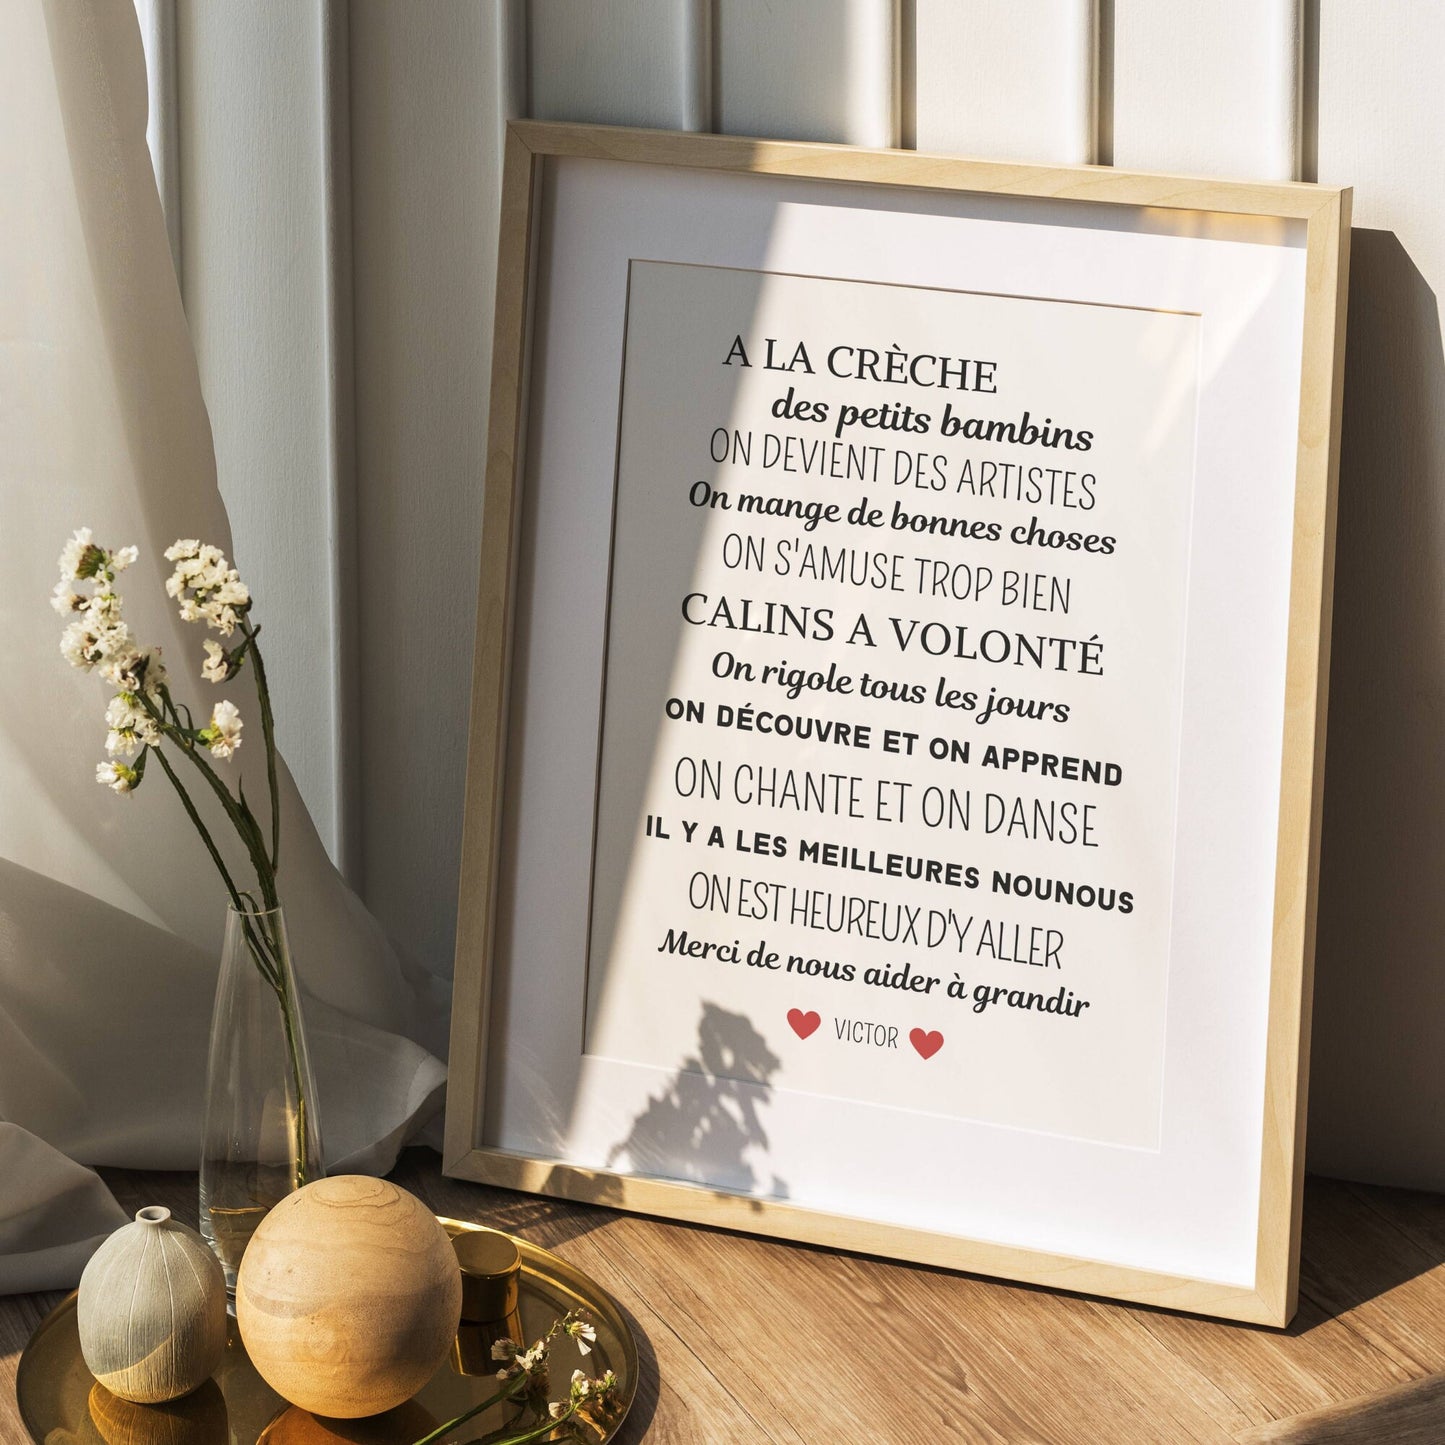 A LA CRÈCHE
des petits bambins
ON DEVIENT DES ARTISTES
On mange de bonnes choses
ON S'AMUSE TROP BIEN
CALINS A VOLONTÉ
On rigole tous les jours
ON DÉCOUVRE ET ON APPREND
ON CHANTE ET ON DANSE
IL Y A LES MEILLEURES NOUNOUS
ON EST HEUREUX D'Y ALLER
Merci de nous aider à grandir
VICTOR